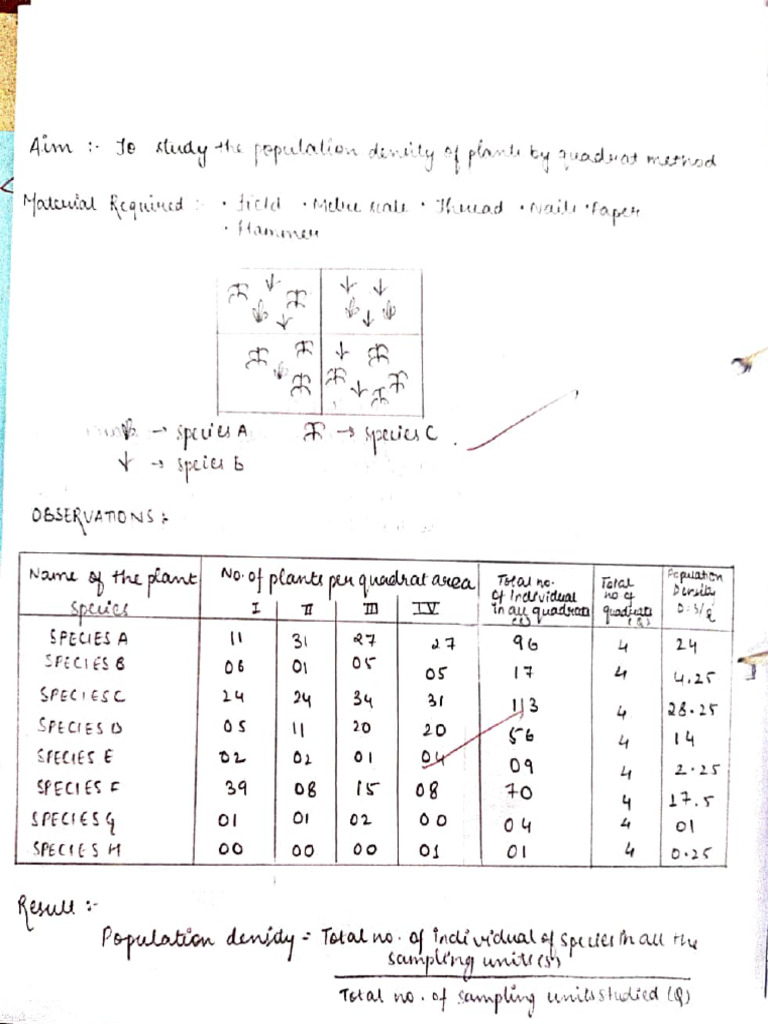 Aim :- To study the population density of plants by quadrat method
Material Required :- • Field • Metre scale • Thread • Nails • Paper
• Hammer
→ Species A → Species C
→ Species B
OBSERVATIONS :-
Name of the plant Species No. of plants per quadrat area Total no. of individual in all quadrats (S) Total no of quadrats (Q) Population Density D=S/Q
I II III IV
SPECIES A 11 31 27 27 96 4 24
SPECIES B 06 01 05 05 17 4 4.25
SPECIES C 24 24 34 31 113 4 28.25
SPECIES D 05 11 20 20 56 4 14
SPECIES E 02 02 01 04 09 4 2.25
SPECIES F 39 08 15 08 70 4 17.5
SPECIES G 01 01 02 00 04 4 01
SPECIES H 00 00 00 01 01 4 0.25
Result :-
Population density = Total no. of individual of species in all the
sampling units (S)
Total no. of sampling units studied (Q)